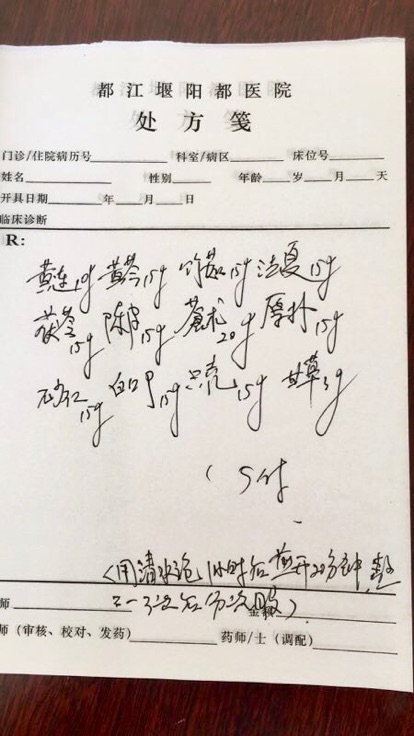 都江堰阳都医院
处方笺
门诊/住院病历号 科室/病区 床位号
姓名 性别 年龄 岁 月 天
开具日期 年 月 日
临床诊断
R:
黄连10g 黄芩15g 竹茹15g 法夏15g
茯苓15g 陈皮15g 苍术20g 厚朴15g
砂仁15g 白口15g 只壳15g 甘草3g
5付
(用清水泡1小时后煎开20分钟,
后分次服)
师 金额
师(审核、校对、发药) 药师/士(调配)